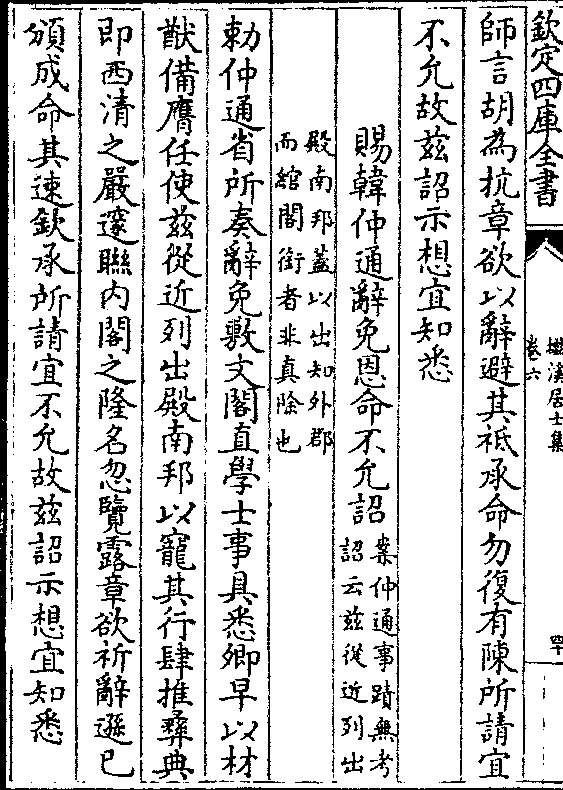 欽定四庫全書
卷六
師言胡為抗章欲以辭避其祗承命勿復有陳所請宜
不允故兹詔示想宜知悉
賜韓仲通辭免恩命不允詔
案仲通事蹟無考
詔云兹從近列出
殿南邦蓋以出知外郡
而綰閣銜者非真除也
勅仲通省所奏辭免敷文閣直學士事具悉卿早以材
猷備膺任使兹從近列出殿南邦以寵其行肆推彛典
即西清之嚴邃聯内閣之隆名忽覽露章欲祈辭遜已
頒成命其速欽承所請宜不允故兹詔示想宜知悉